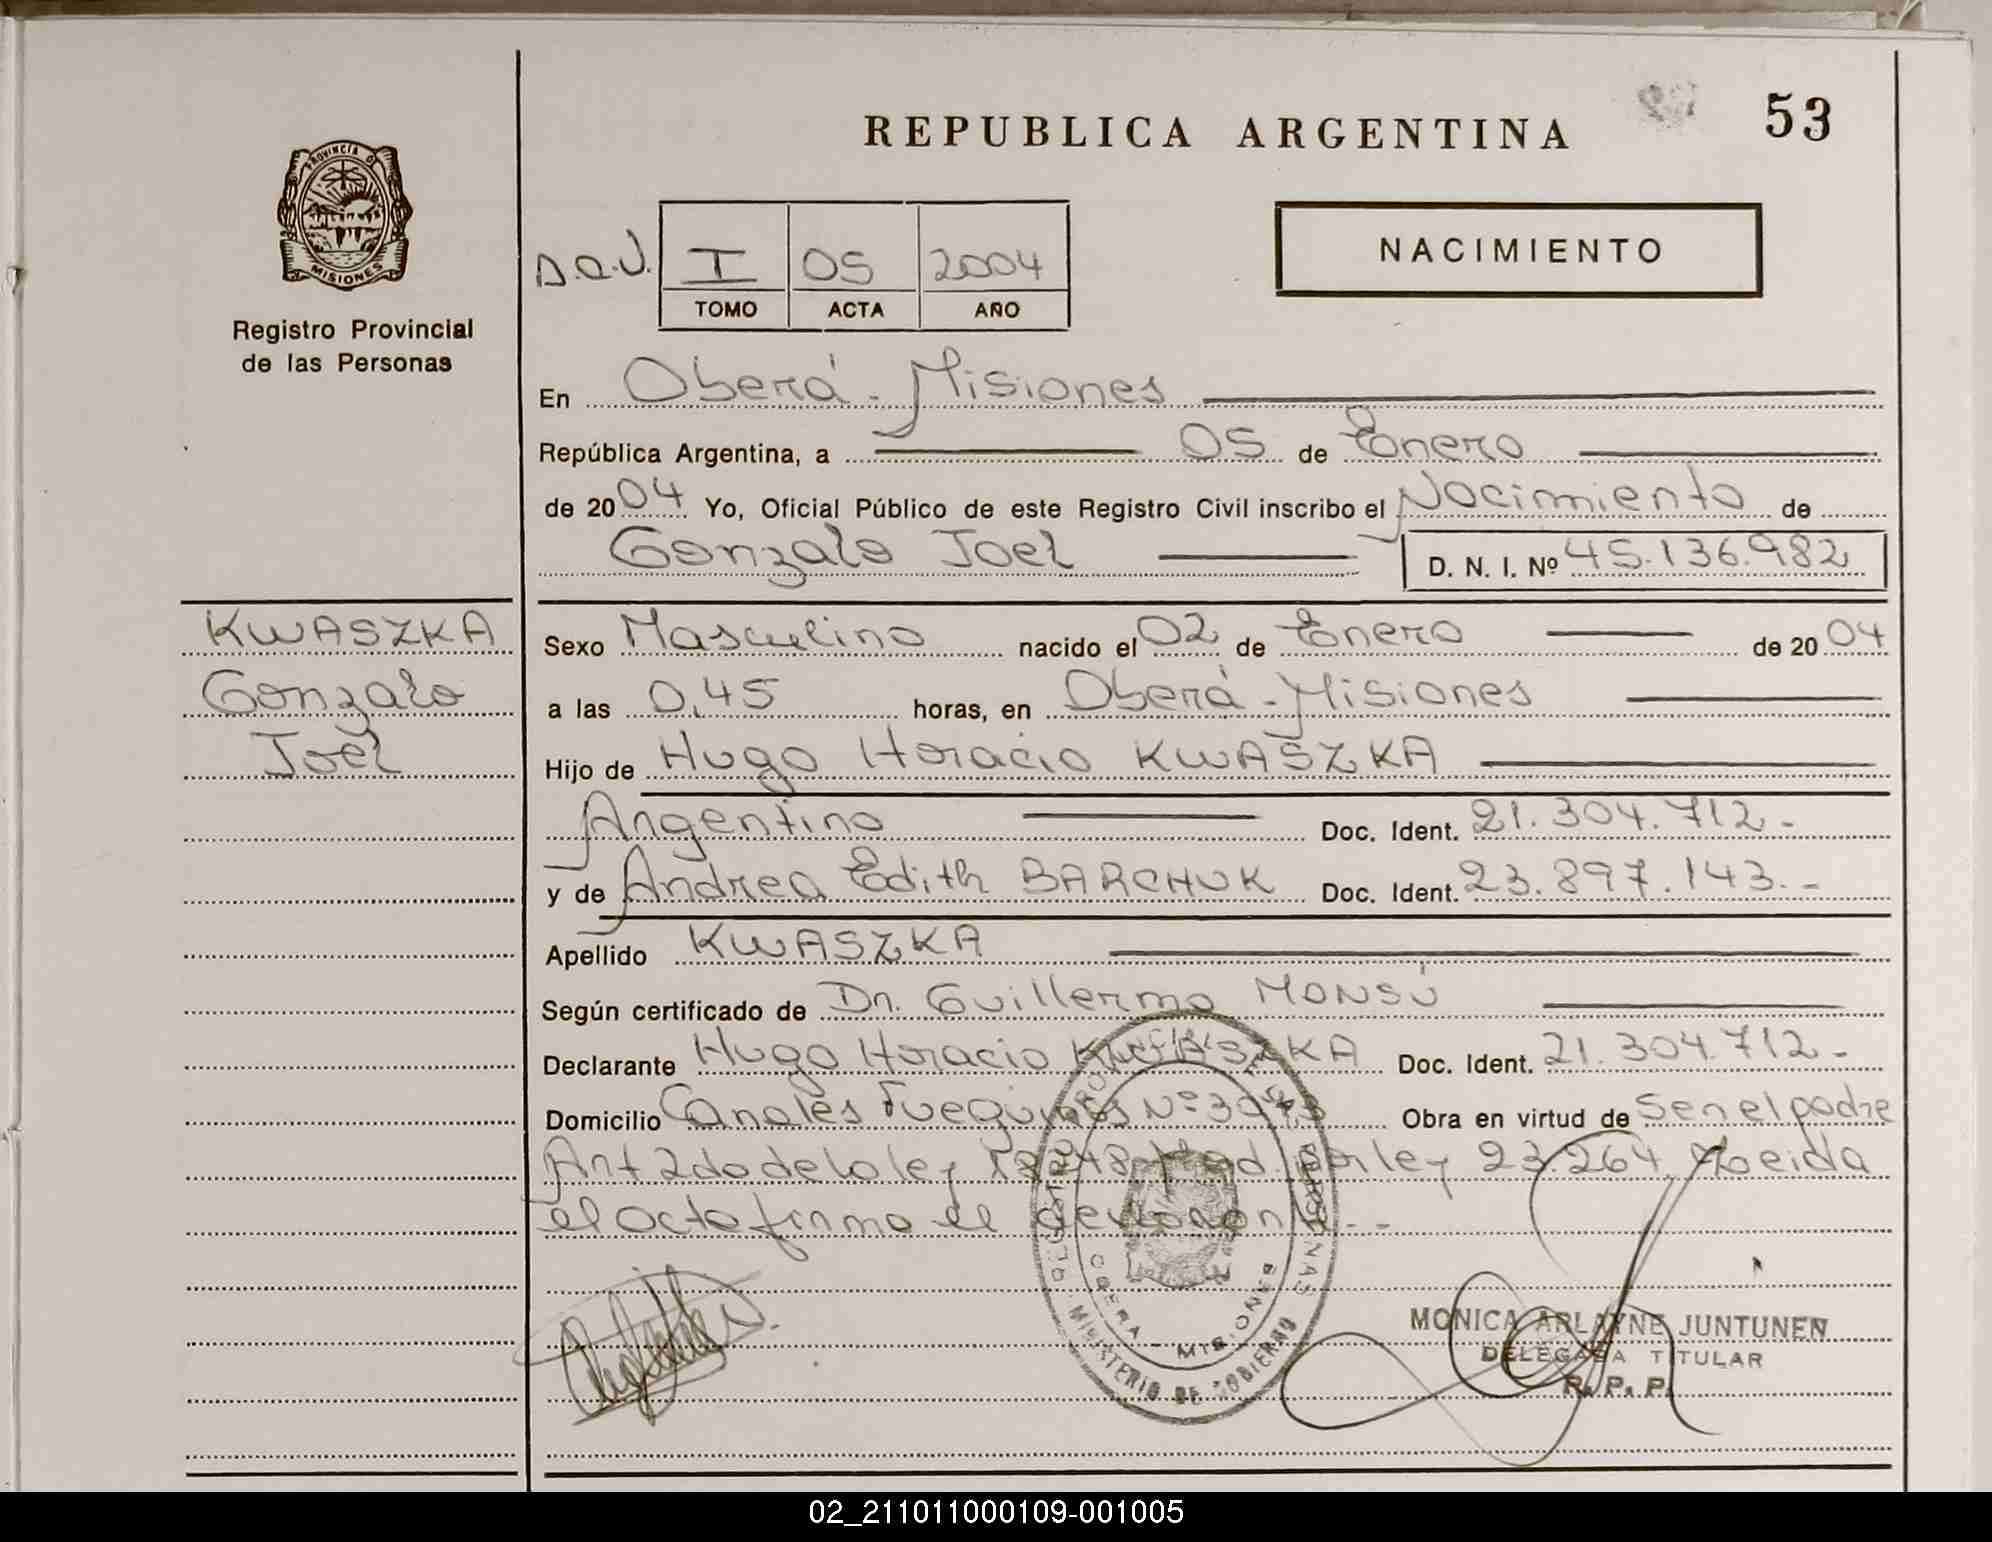 REPUBLICA ARGENTINA
53
PROVINCIA D
MISIONES
Registro Provincial
de las Personas
D.Q.U. I 05 2004
TOMO ACTA AÑO
NACIMIENTO
En Oberá - Misiones
República Argentina, a 05 de Enero
de 2004 Yo, Oficial Público de este Registro Civil inscribo el Nacimiento de
Gonzalo Joel D. N. I. Nº 45.136.982
KWASZKA
Gonzalo
Joel
Sexo Masculino nacido el 02 de Enero de 2004
a las 0,45 horas, en Oberá - Misiones
Hijo de Hugo Horacio KWASZKA
Argentino Doc. Ident. 21.304.712.-
y de Andrea Edith BARCHUK Doc. Ident. 23.897.143.-
Apellido KWASZKA
Según certificado de Dr. Guillermo MONSÚ
Declarante Hugo Horacio KWASZKA Doc. Ident. 21.304.712.-
Domicilio Canales Fueguinos Nº Obra en virtud de Ser el padre
Art 2do de la ley 18248 Mod. por ley 23.264 Leida
el acta firma el declarante.--
REGISTRO PROVINCIAL DE LAS PERSONAS
OBERA - MISIONES
MINISTERIO DE GOBIERNO
MONICA ARLAYNE JUNTUNEN
DELEGADA TITULAR
R. P. P.
02_211011000109-001005